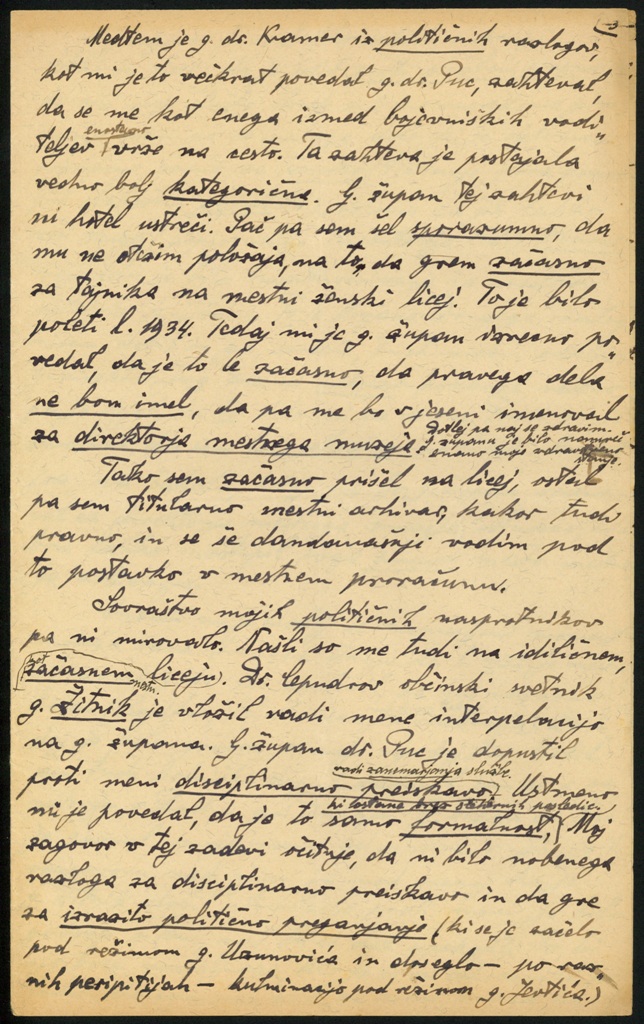 3
Medtem je g. dr. Kramer iz političnih razlogov,
kot mi je to večkrat povedal g. dr. Puc, zahteval,
da se me kot enega izmed bojevniških vodi-
enostavno
teljev vrže na cesto. Ta zahteva je postajala
vedno bolj kategorična. G. župan tej zahtevi
ni hotel ustreči. Pač pa sem šel sporazumno, da
mu ne otežim položaja, na to, da grem začasno
za tajnika na mestni ženski licej. To je bilo
poleti l. 1934. Tedaj mi je g. župan izrecno po-
vedal, da je to le začasno, da pravega dela
ne bom imel, da pa me bo v jeseni imenoval
za direktorja mestnega muzeja.
Dotlej pa naj se zdravim.
G. županu je bilo namreč
znano moje zdravstveno
stanje.
Tako sem začasno prišel na licej, ostal
pa sem titularno mestni arhivar, kakor tudi
pravno, in se še dandanašnji vodim pod
to postavko v mestnem proračunu.
Sovraštvo mojih političnih nasprotnikov
pa ni mirovalo. Našli so me tudi na idiličnem,
kot
začasnem liceju. Dr. lepudrov občinski svetnik
g. Žitnik je vložil radi mene interpelacijo
na g. župana. G. župan dr. Puc je dopustil
radi zanemarjanja službe.
proti meni disciplinarno preiskavo. Ustmeno
ki ostane brez slabih posledic.
mi je povedal, da je to samo formalnost, (Moj
zagovor v tej zadevi očituje, da ni bilo nobenega
razloga za disciplinarno preiskavo in da gre
za izrazito politično preganjanje (ki se je začelo
pod režimom g. Uzunovića in doseglo – po raz-
nih peripitijah – kulminacijo pod režimom g. Jevtića.)